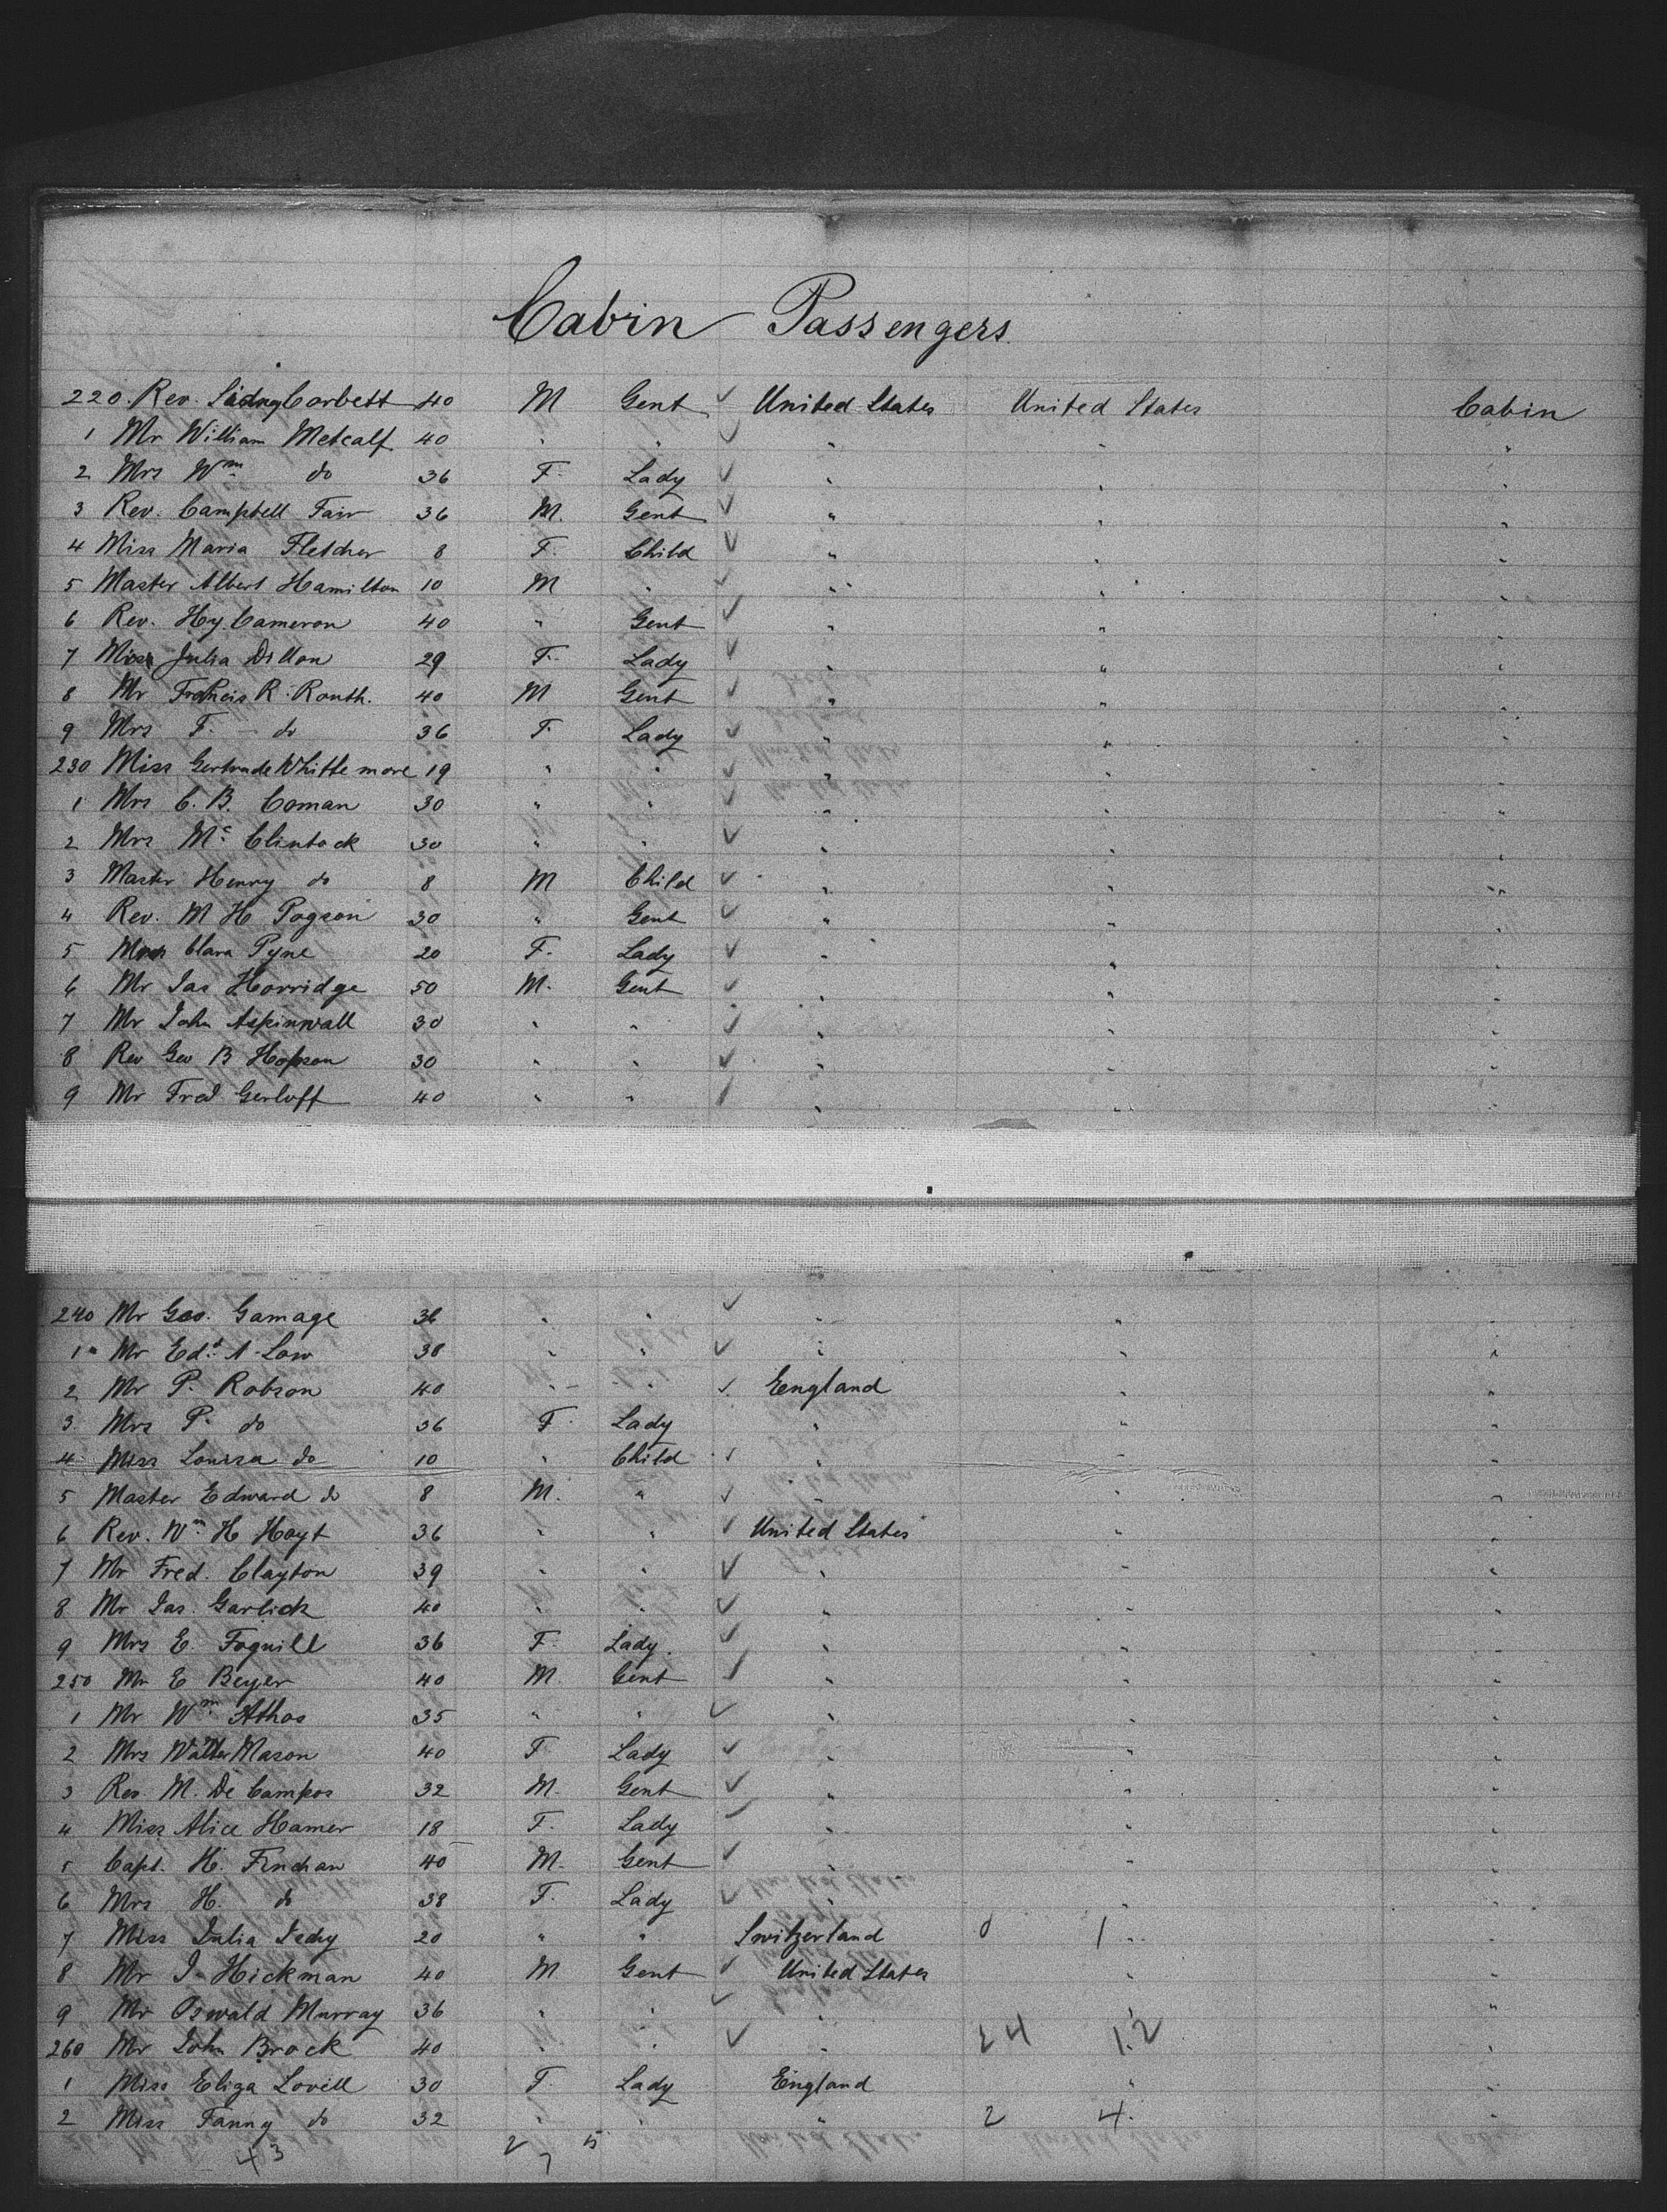 Cabin Passengers.
220. Rev. Sidney Corbett 40 M Gent ✓ United States United States Cabin
1 Mr William Metcalf 40 " " ✓ " " "
2 Mrs Wm do 36 F. Lady ✓ " " "
3 Rev. Campbell Fair 36 M. Gent ✓ " " "
4 Miss Maria Fletcher 8 F. Child ✓ " " "
5 Master Albert Hamilton 10 M " ✓ " " "
6 Rev. Hy. Cameron 40 " Gent ✓ " " "
7 Miss Julia Dillon 29 F. Lady ✓ " " "
8 Mr Francis R. Routh. 40 M Gent ✓ " " "
9 Mrs F. do 36 F. Lady ✓ " " "
230 Miss Gertrude Whittemore 19 " " ✓ " " "
1 Mrs C. B. Coman 30 " " ✓ " " "
2 Mrs Mc Clintock 30 " " ✓ " " "
3 Master Henry do 8 M Child ✓ " " "
4 Rev. M H Pogson 30 " Gent ✓ " " "
5 Clara Pyne 20 F. Lady ✓ " " "
6 Mr Jas Horridge 50 M. Gent ✓ " " "
7 Mr John Aspinwall 30 " " ✓ " " "
8 Rev Geo B Hopson 30 " " ✓ " " "
9 Mr Fred Gerloff 40 " " ✓ " " "
240 Mr Geo. Gamage 36 " " ✓ " " "
1 Mr Edd A Low 38 " " ✓ " " "
2 Mr P. Robson 40 " " ✓ Eengland " "
3. Mrs P. do 36 F. Lady " " "
4 Miss Louisa do 10 " Child ✓ " " "
5 Master Edward do 8 M. " ✓ " " "
6 Rev. Wm H Hoyt 36 " " ✓ United States " "
7 Mr Fred. Clayton 39 " " ✓ " " "
8 Mr Jas. Garlick 40 " " ✓ " " "
9 Mrs E. Foquill 36 F. Lady. ✓ " " "
250 Mr E Beyer 40 M. Gent ✓ " " "
1 Mr Wm Athos 35 " " ✓ " " "
2 Mrs Walter Mason 40 F Lady ✓ " " "
3 Rev. M. De Campos 32 M. Gent ✓ " " "
4 Miss Alice Hamer 18 F. Lady ✓ " " "
5 Capt. H. Finchan 40 M. Gent ✓ " " "
6 Mrs H. do 38 F. Lady ✓ " " "
7 Miss Julia 20 " " Switzerland 0 1 "
8 Mr J Hickman 40 M Gent ✓ United States " "
9 Mr Oswald Murray 36 " " ✓ " " "
260 Mr John Brock 40 " " ✓ " 24 12 "
1 Miss Eliza Lovell 30 F. Lady England " "
2 Miss Fanny do 32 " " " 2 4 "
43 2 7 15